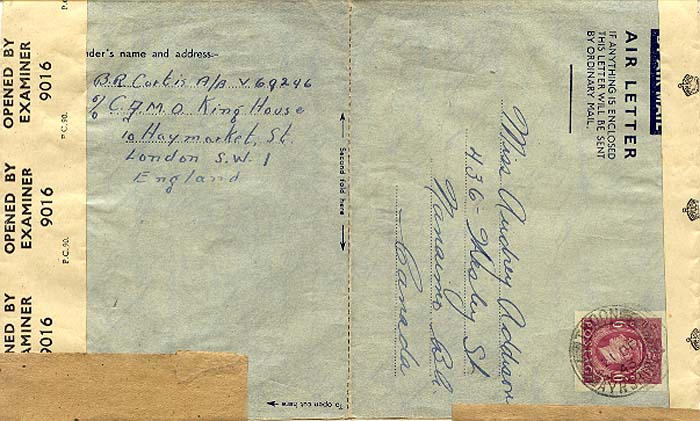 OPENED BY
EXAMINER
9016
P.C. 90.
OPENED BY
EXAMINER
9016
P.C. 90.
OPENED BY
EXAMINER
9016
nder's name and address:-
B.R. Curtis A/B V 69246
c/o C.F.M.O King House
10 Haymarket, St.
London S.W. 1
England
Second fold here
To open cut here
AIR LETTER
IF ANYTHING IS ENCLOSED
THIS LETTER WILL BE SENT
BY ORDINARY MAIL.
Miss Audrey Addison
436- Wesley St
Nanaimo B.C.
Canada